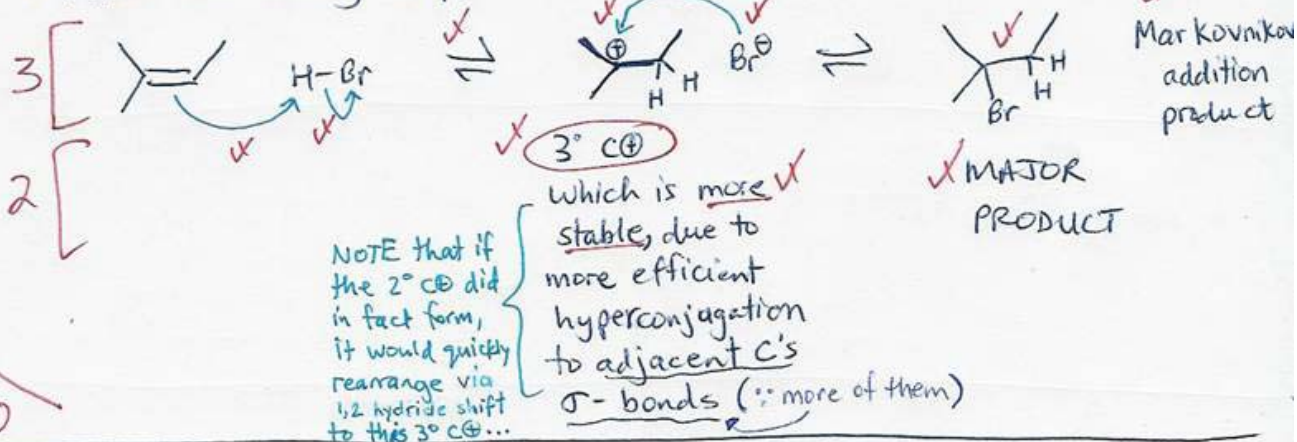 3
H-Br
⇌
⊕
H
H
Br⊖
⇌
H
H
Br
Markovnikov
addition
product
2
3° C⊕
which is more
stable, due to
more efficient
hyperconjugation
to adjacent C's
σ-bonds (∵ more of them)
MAJOR
PRODUCT
NOTE that if
the 2° C⊕ did
in fact form,
it would quickly
rearrange via
1,2 hydride shift
to this 3° C⊕...